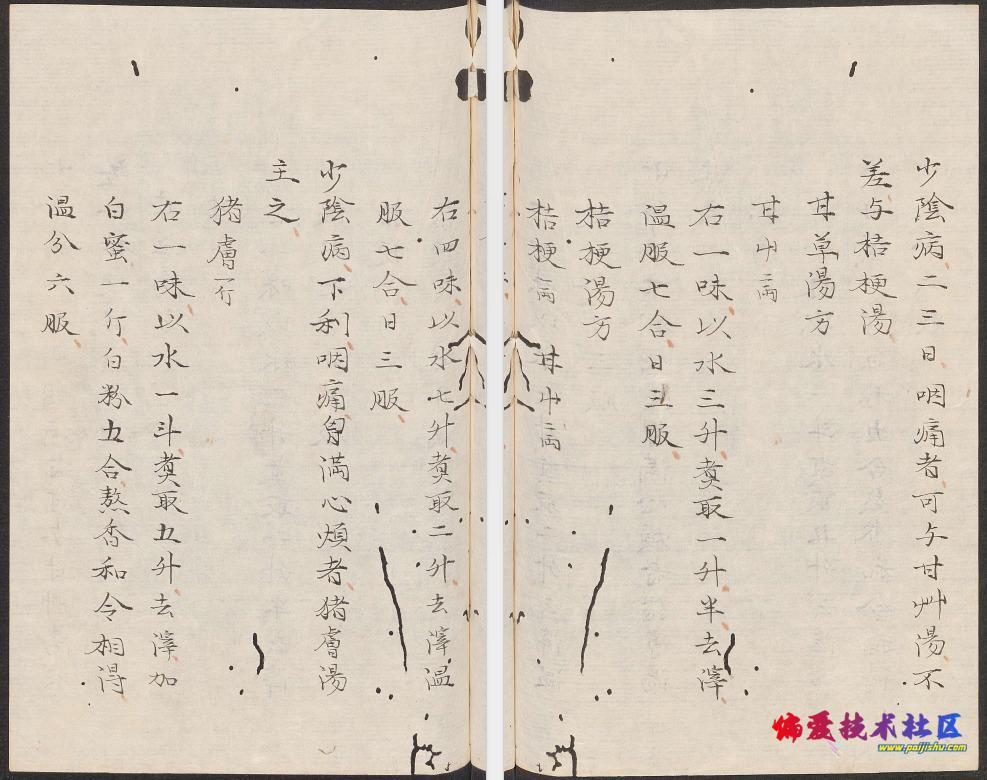 少陰病二三日咽痛者可与甘艸湯不
差与桔梗湯
甘草湯方
甘艸二兩
右一味以水三升煑取一升半去滓
温服七合日三服
桔梗湯方
桔梗一兩 甘艸二兩
右四味以水七升煑取二升去滓温
服七合日三服
少陰病下利咽痛胷满心煩者猪膚湯
主之
猪膚一斤
右一味以水一斗煑取五升去滓加
白蜜一斤白粉五合熬香和令相得
温分六服
偏爱技术社区
www.paijishu.com